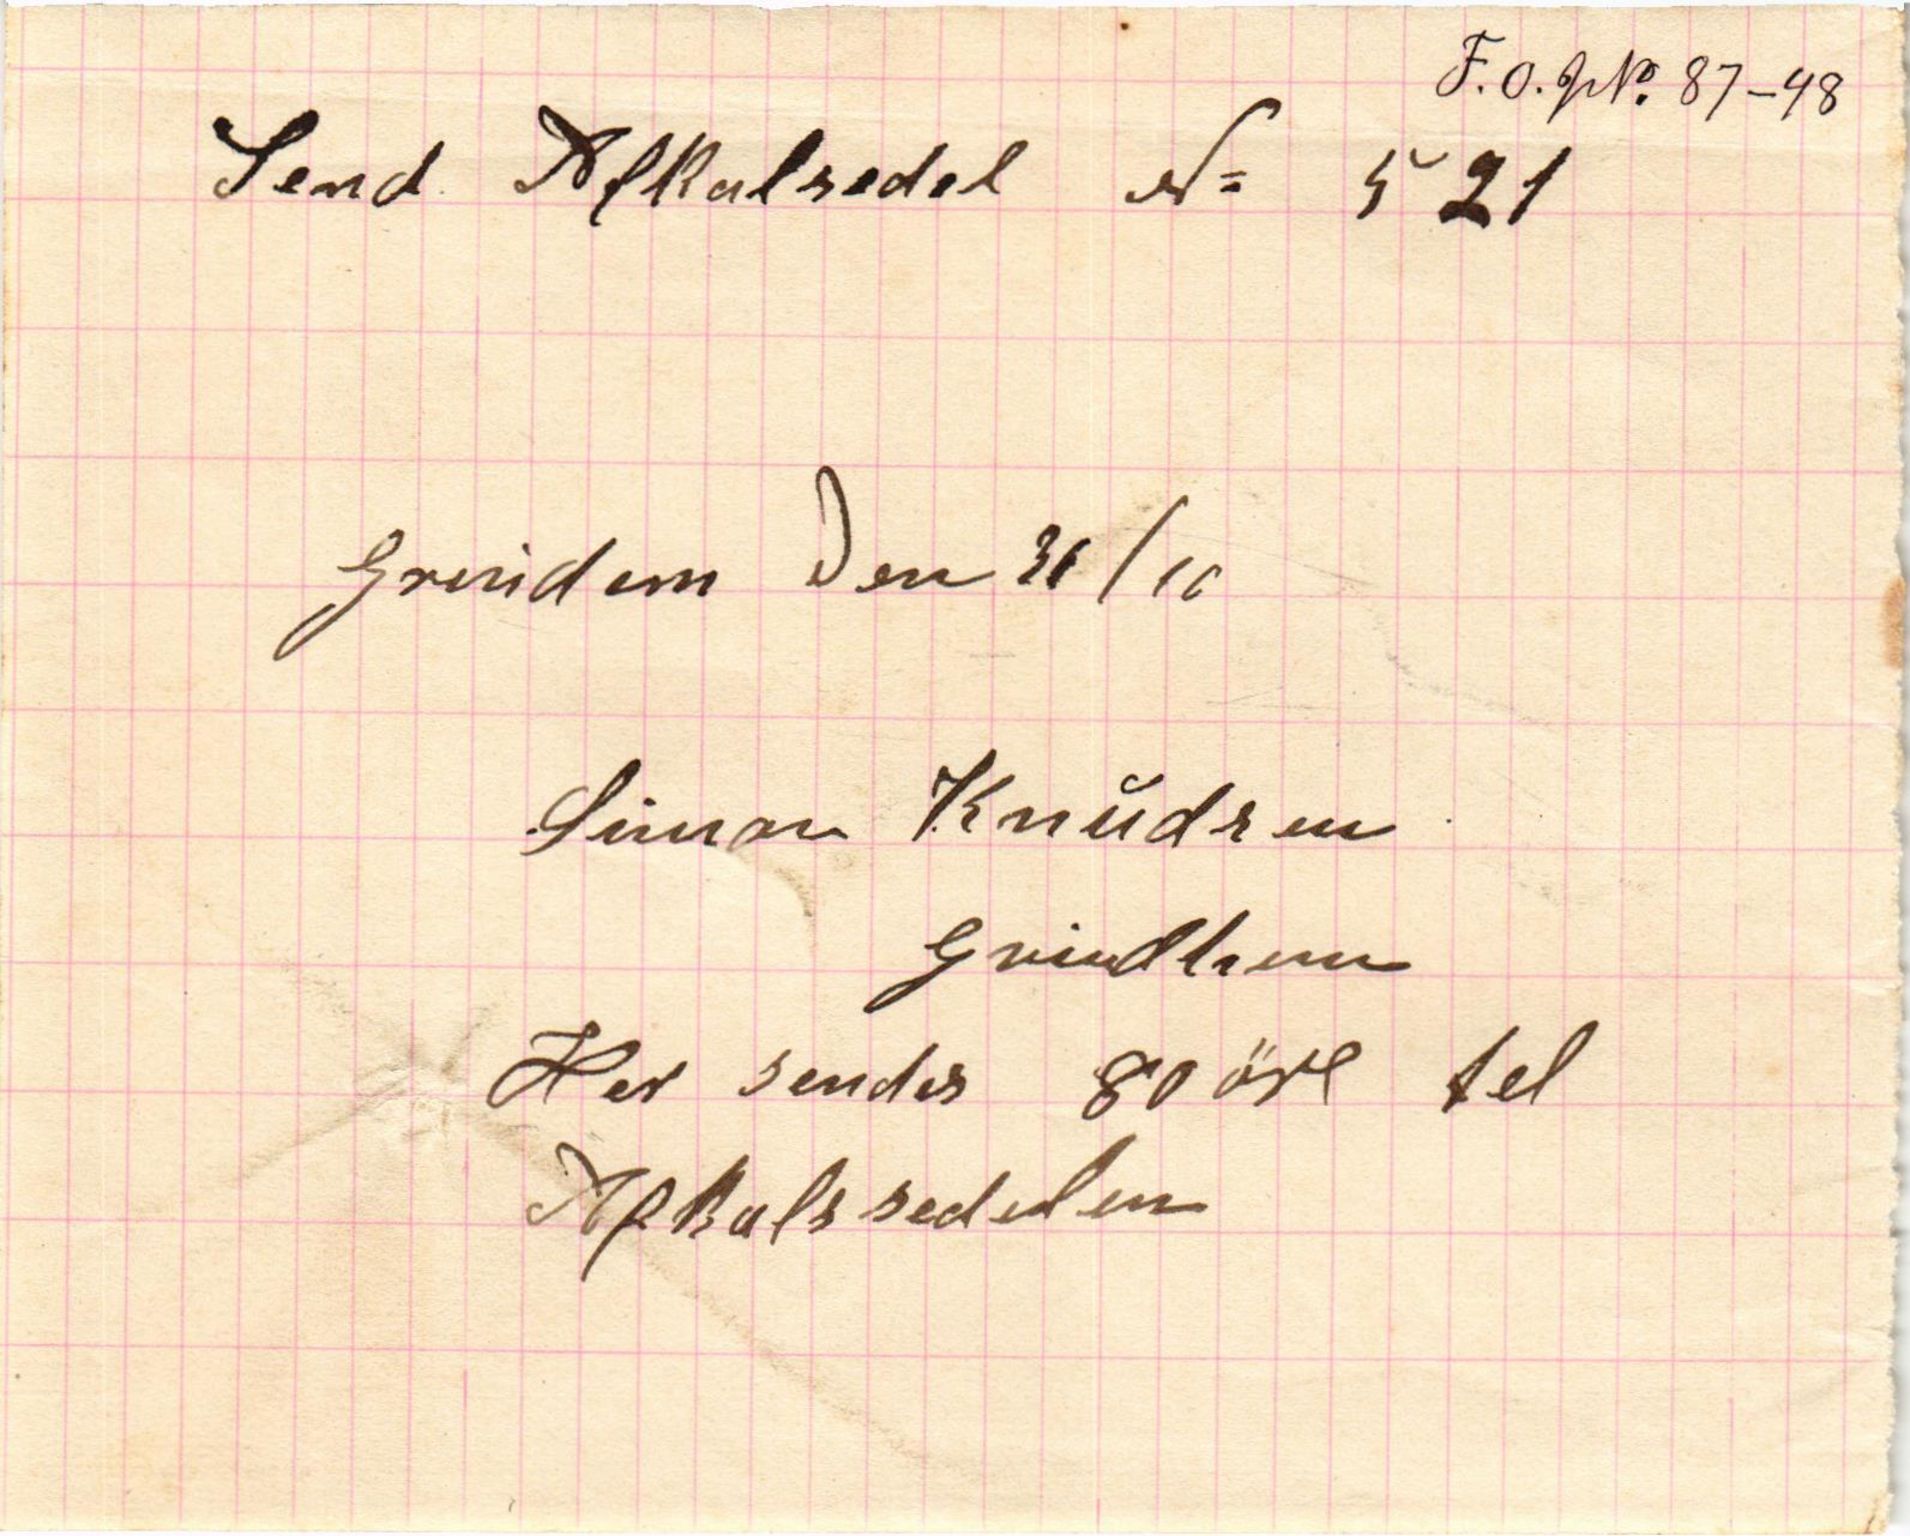 F.O.J No. 87-98
Send Afkalsedel No 521
Grindem Den 31/10
Simon Knudsen
Grindhem
Her sendes 80 öre tel
Afkalssedelen